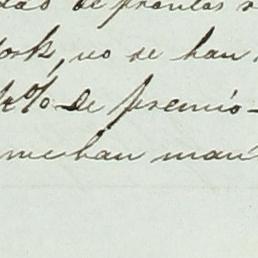 de prontas
ork, no se han
% de premio
me han man